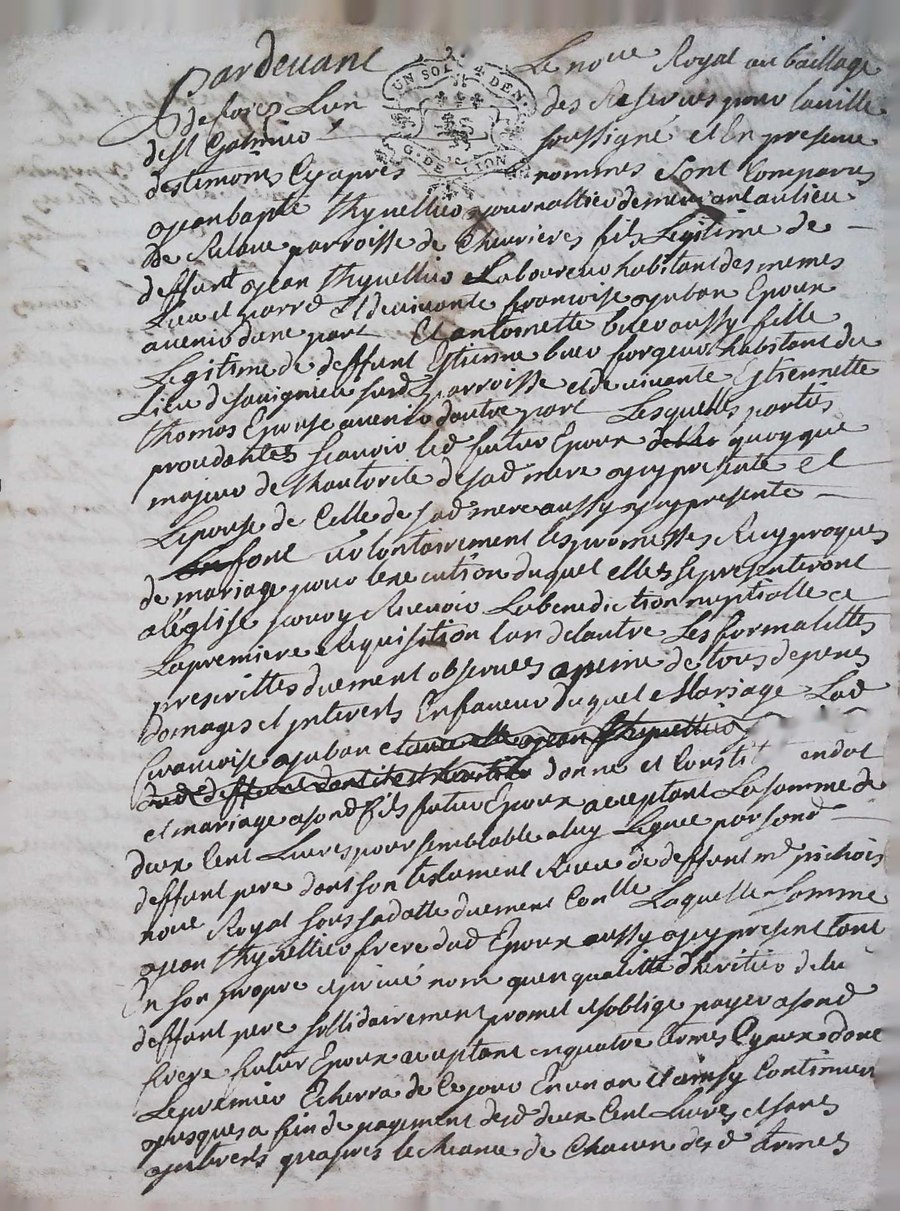 Pardevant Le no.re Royal au bailliage
de forez Lun des Reservés pour la ville
de st Galmier soussigné et En presence
des temoins Cy apres nommes sont Comparus
UN SOL 4 DEN.
G. DE LION
jean baptte thynellier journallier demeurant au lieu
de parroisse de Chevrieres fils Legitime de
deffunt jean thynellier Laboureur habitant des memes
Lieu et parr.e Et de vivante francoise juban Epoux
avenir dune part Et antoinette aussy fille
Legitime de deffunt Estienne forgeur habitant du
Lieu de susd. parroisse et de vivante Estiennette
thomas Epouse avenir dautre part Lesquelles parties
procedantes scavoir led futur Epoux quoyque
majeur de Lhautorité de sad mere ycy presente et
Lepouse de Celle de sad mere aussy ycy presente
font volontairement les promesses Reciproques
de mariage pour lexecution duquel elles se presenteront
a léglise pour y Recevoir La benediction nuptialle a
La premiere Requisition lun de lautre Les formalittes
prescrittes duement observées a peine de tous depens
Domages et jnterets En faveur duquel Mariage Lad
francoise juban et jean thynellier
dud deffunt donne et Constit en dot
et mariage a sond fils futur Epoux acceptant La somme de
deux Cent Livres pour semblable a luy Leguée par sond
deffunt pere dans son testament Receu de deffunt me pichois
no.re Royal sous sa datte duement Conllé Laquelle somme
jean thynellier frere dud Epoux aussy ycy present tant
En son propre et privé nom quen qualitté dheritier de lu
deffunt pere sollidairement promet et soblige payer a sond
frere futur Epoux acceptant en quatre termes Egaux dont
Le premier Echerra de Ce jour En un an et ainsy Continuer
jusques a fin de payement desd deux Cent Livres et sans
jnterets quapres lecheance de Chacun desd termes